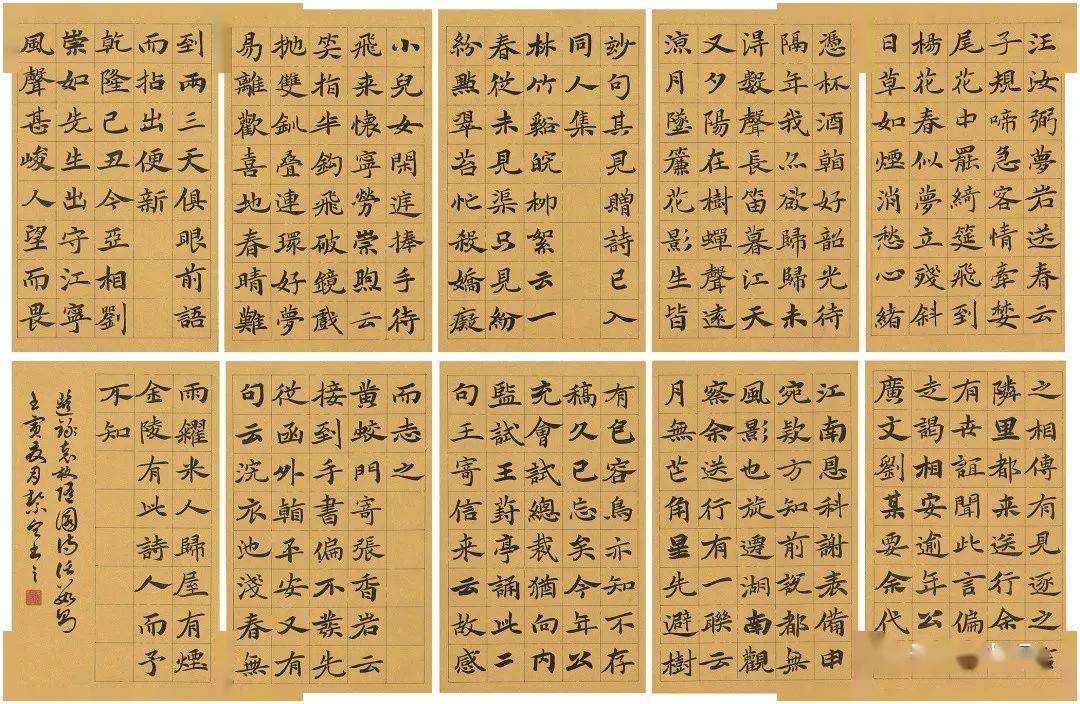 汪汝弼夢岩送春云
子規啼急客情牽婪
尾花中罷綺筵飛到
楊花春似夢立殘斜
日草如煙消愁心緒
憑杯酒䪂好韶光待
隔年我亦欲歸歸未
得數聲長笛暮江天
又夕陽在樹蟬聲遠
涼月墜簾花影生皆
妙句其見贈詩已入
同人集
林竹谿皖柳絮云一
春從未見渠只見紛
紛點翠苔忙殺嬌癡
小兒女閑庭捧手待
飛來懷寧勞崇煦云
笑指半鉤飛破鏡戲
拋雙釧疊連環好夢
易離歡喜地春晴難
到兩三天俱眼前語
而拈出便新
乾隆己丑今亞相劉
崇如先生出守江寧
風聲甚峻人望而畏
之相傳有見逐之
隣里都來送行余
有世誼聞此言偏
走謁相安逾年公
廣文劉某要余代
江南恩科謝表備申
宛款方知前說都無
風影也旋遷湖南觀
察余送行有一聯云
月無芒角星先避樹
有包容鳥亦知不存
稿久已忘矣今年公
充會試總裁猶向內
監試王葑亭誦此二
句王寄信來云故感
而志之
黄蛟門寄張香岩云
接到手書偏不發先
從函外䪂平安又有
句云浣衣池淺春無
雨糴米人歸屋有煙
金陵有此詩人而予
不知
選錄袁枚隨園詩話
壬寅夏月書之